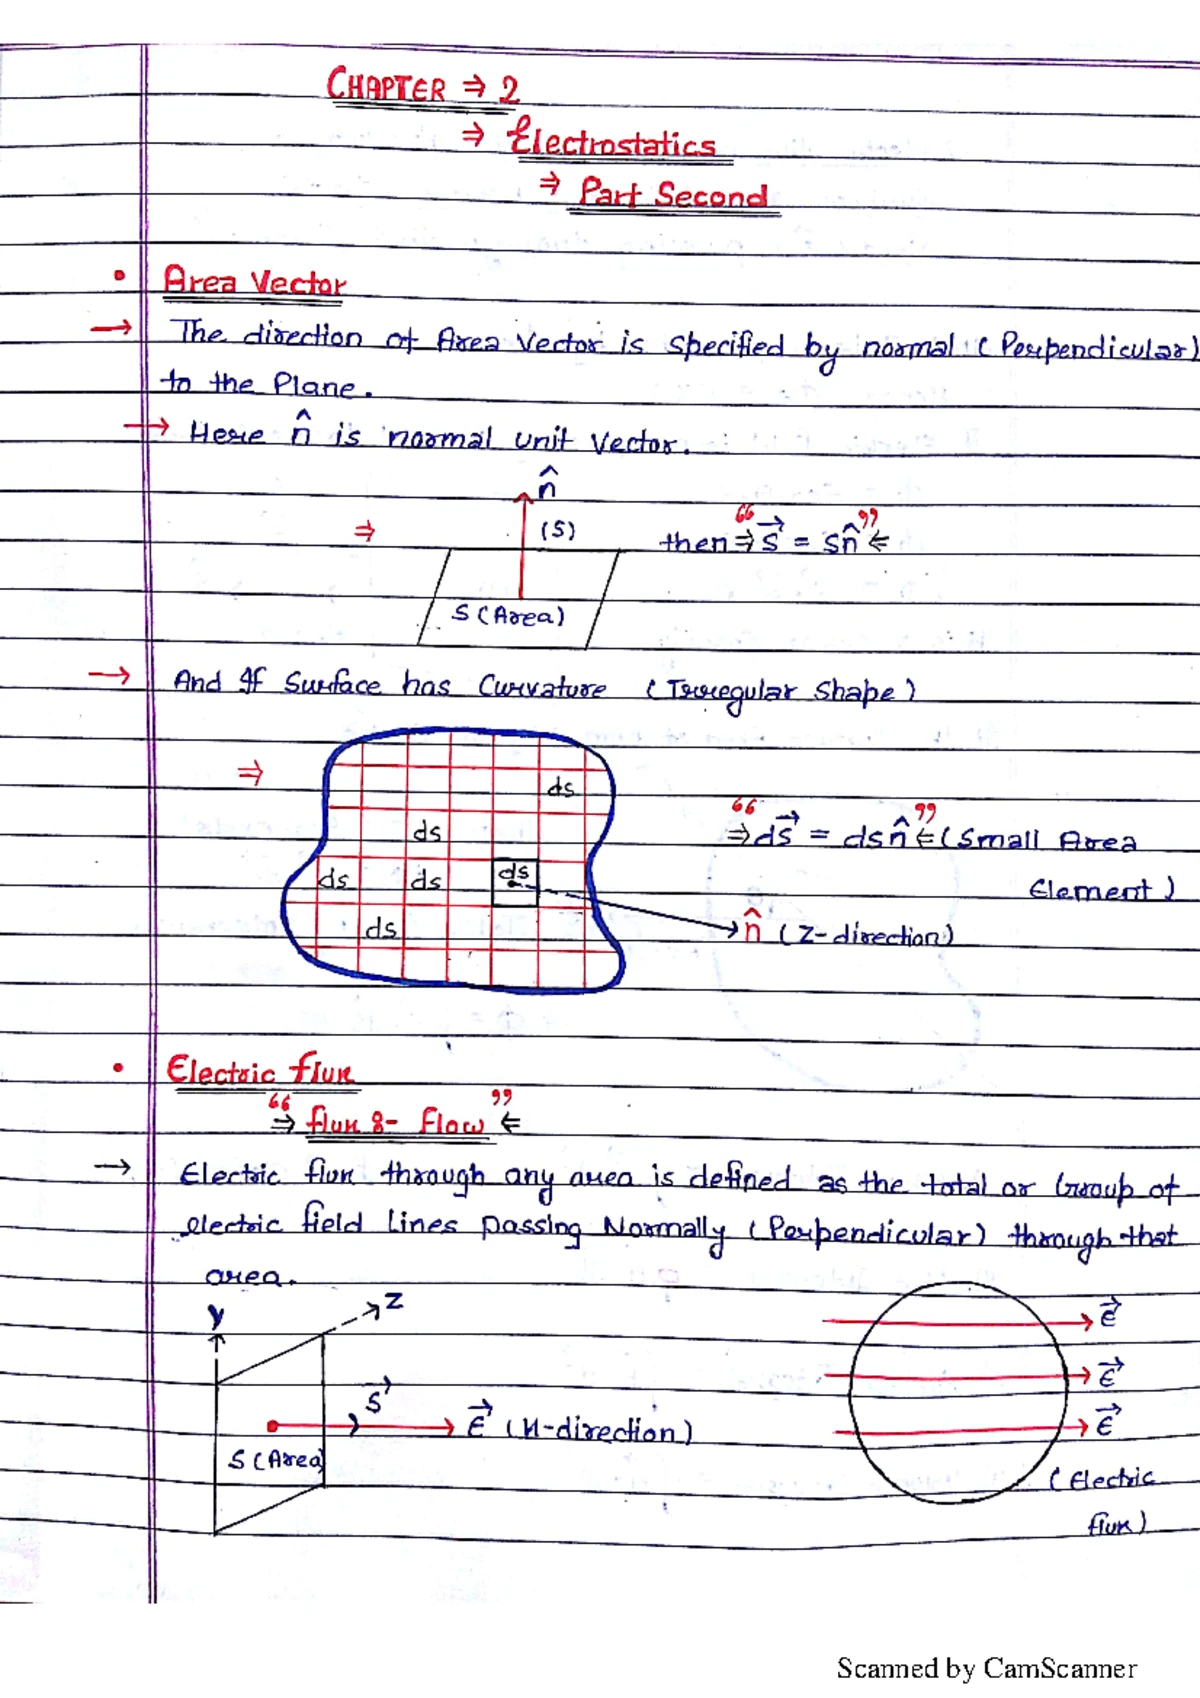 CHAPTER ⇒ 2
⇒ Electrostatics
⇒ Part Second
• Area Vector
→ The direction of Area Vector is specified by normal (Perpendicular)
to the Plane.
→ Here n̂ is normal unit Vector.
n̂
⇒ (S) then “⇒ S⃗ = Sn̂ ⇐”
S (Area)
→ And If Surface has Curvature (Irregular Shape)
⇒ ds
ds “⇒ dS⃗ = dsn̂ ⇐” (Small Area
ds ds ds Element)
ds n̂ (Z-direction)
• Electric flux
“⇒ flux :- Flow ⇐”
→ Electric flux through any area is defined as the total or Group of
electric field lines passing Normally (Perpendicular) through that
area.
y Z E⃗
S⃗ E⃗
E⃗ (X-direction) E⃗
S (Area) (Electric
flux)
Scanned by CamScanner